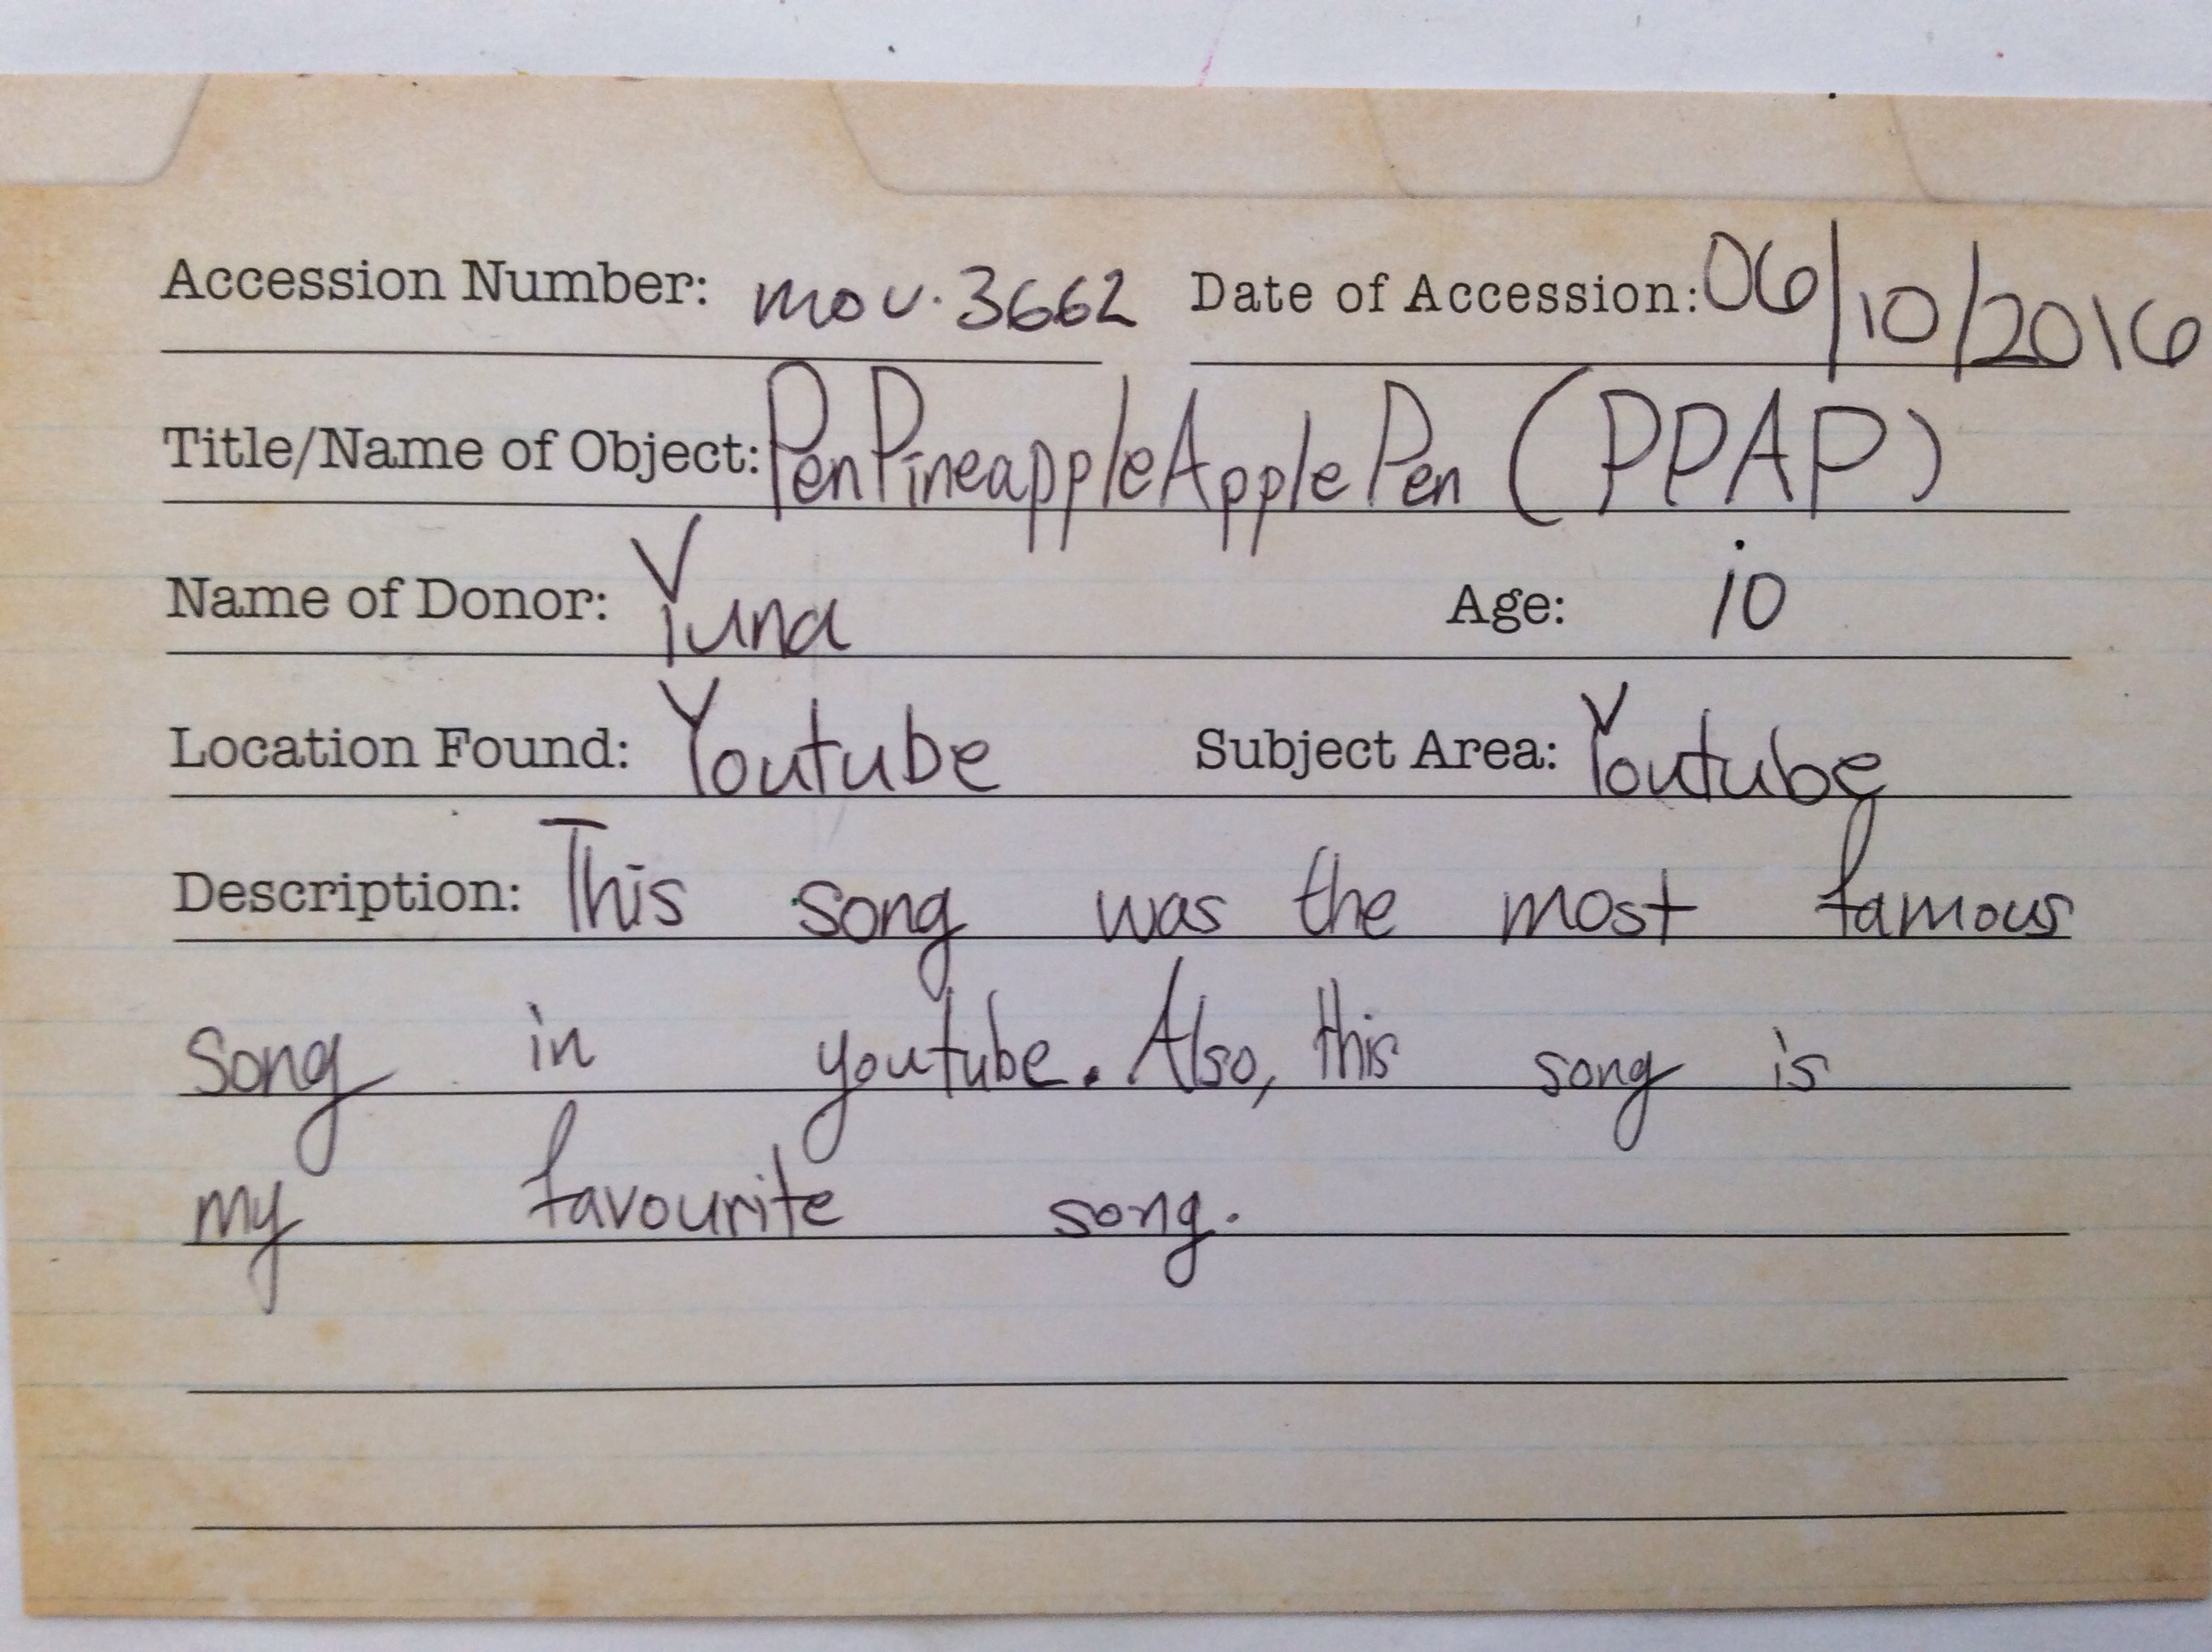 Accession Number: mov.3662 Date of Accession: 06/10/2016
Title/Name of Object: PenPineappleApplePen (PPAP)
Name of Donor: Yuna Age: 10
Location Found: Youtube Subject Area: Youtube
Description: This song was the most famous
song in youtube. Also, this song is
my favourite song.